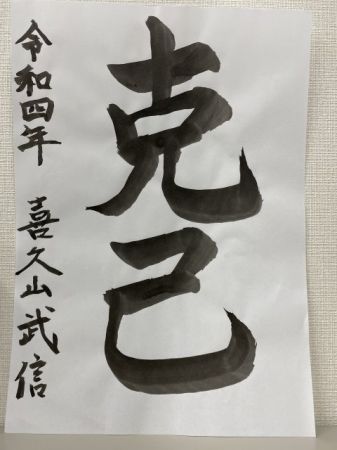 克己
令和四年 喜久山武信